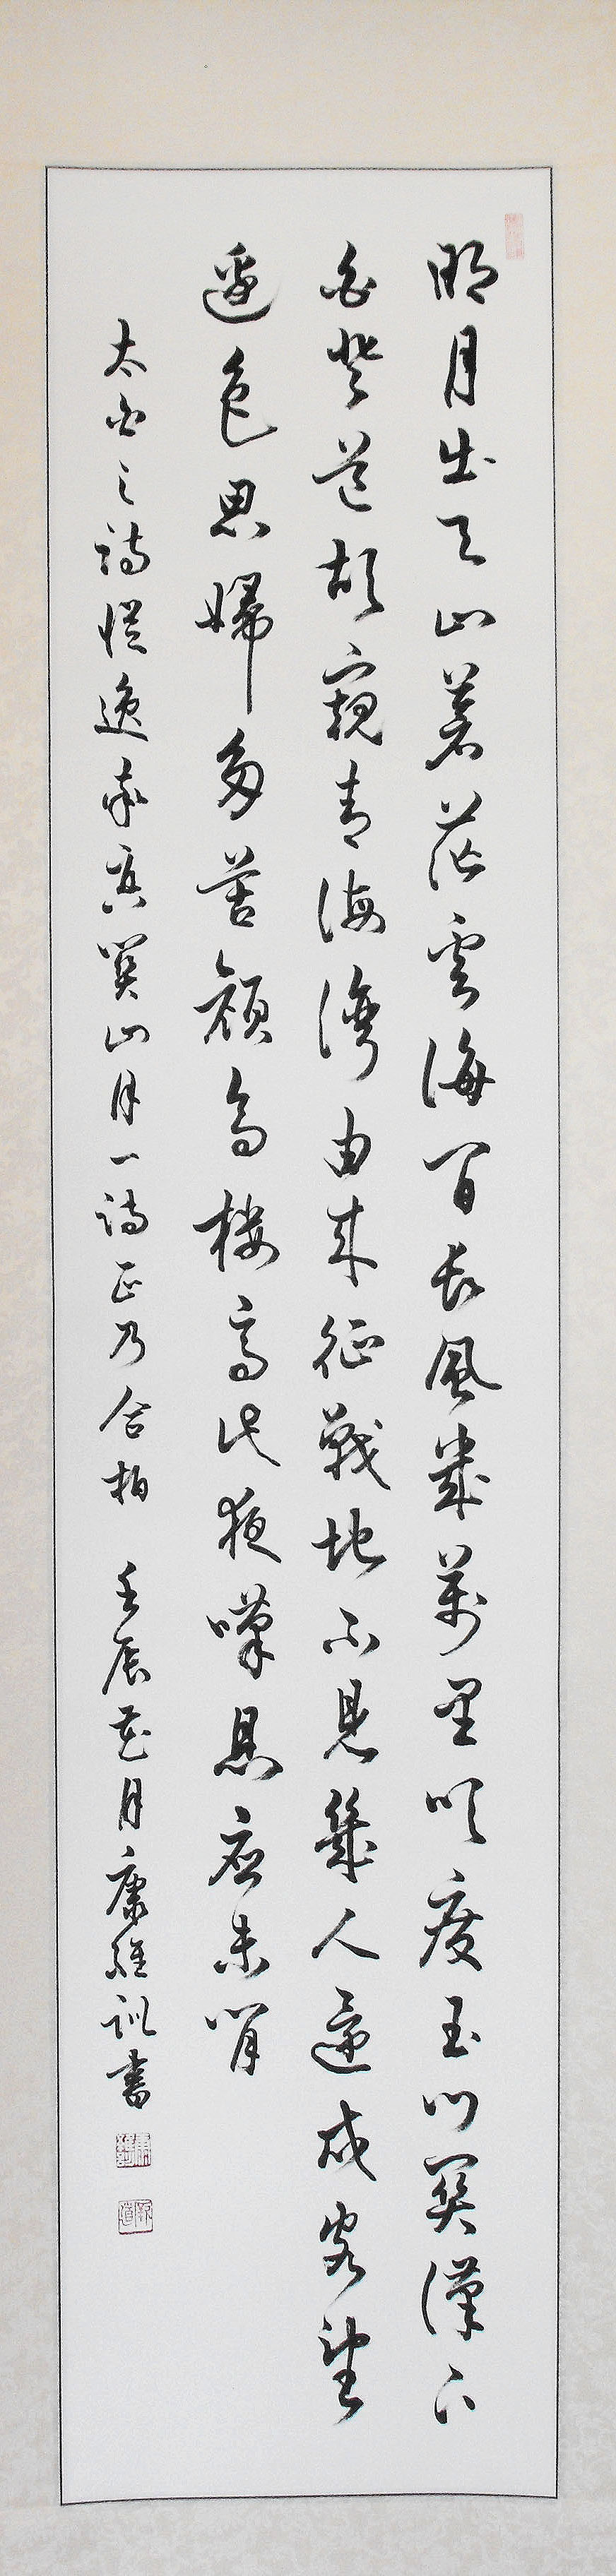 明月出天山蒼茫雲海間長風幾萬里吹度玉門關漢下
白登道胡窺青海灣由來征戰地不見幾人還戍客望
邊色思歸多苦顏高樓當此夜嘆息應未閒
太白之詩逸關山月一詩正乃合拍 壬辰花月康維訓書